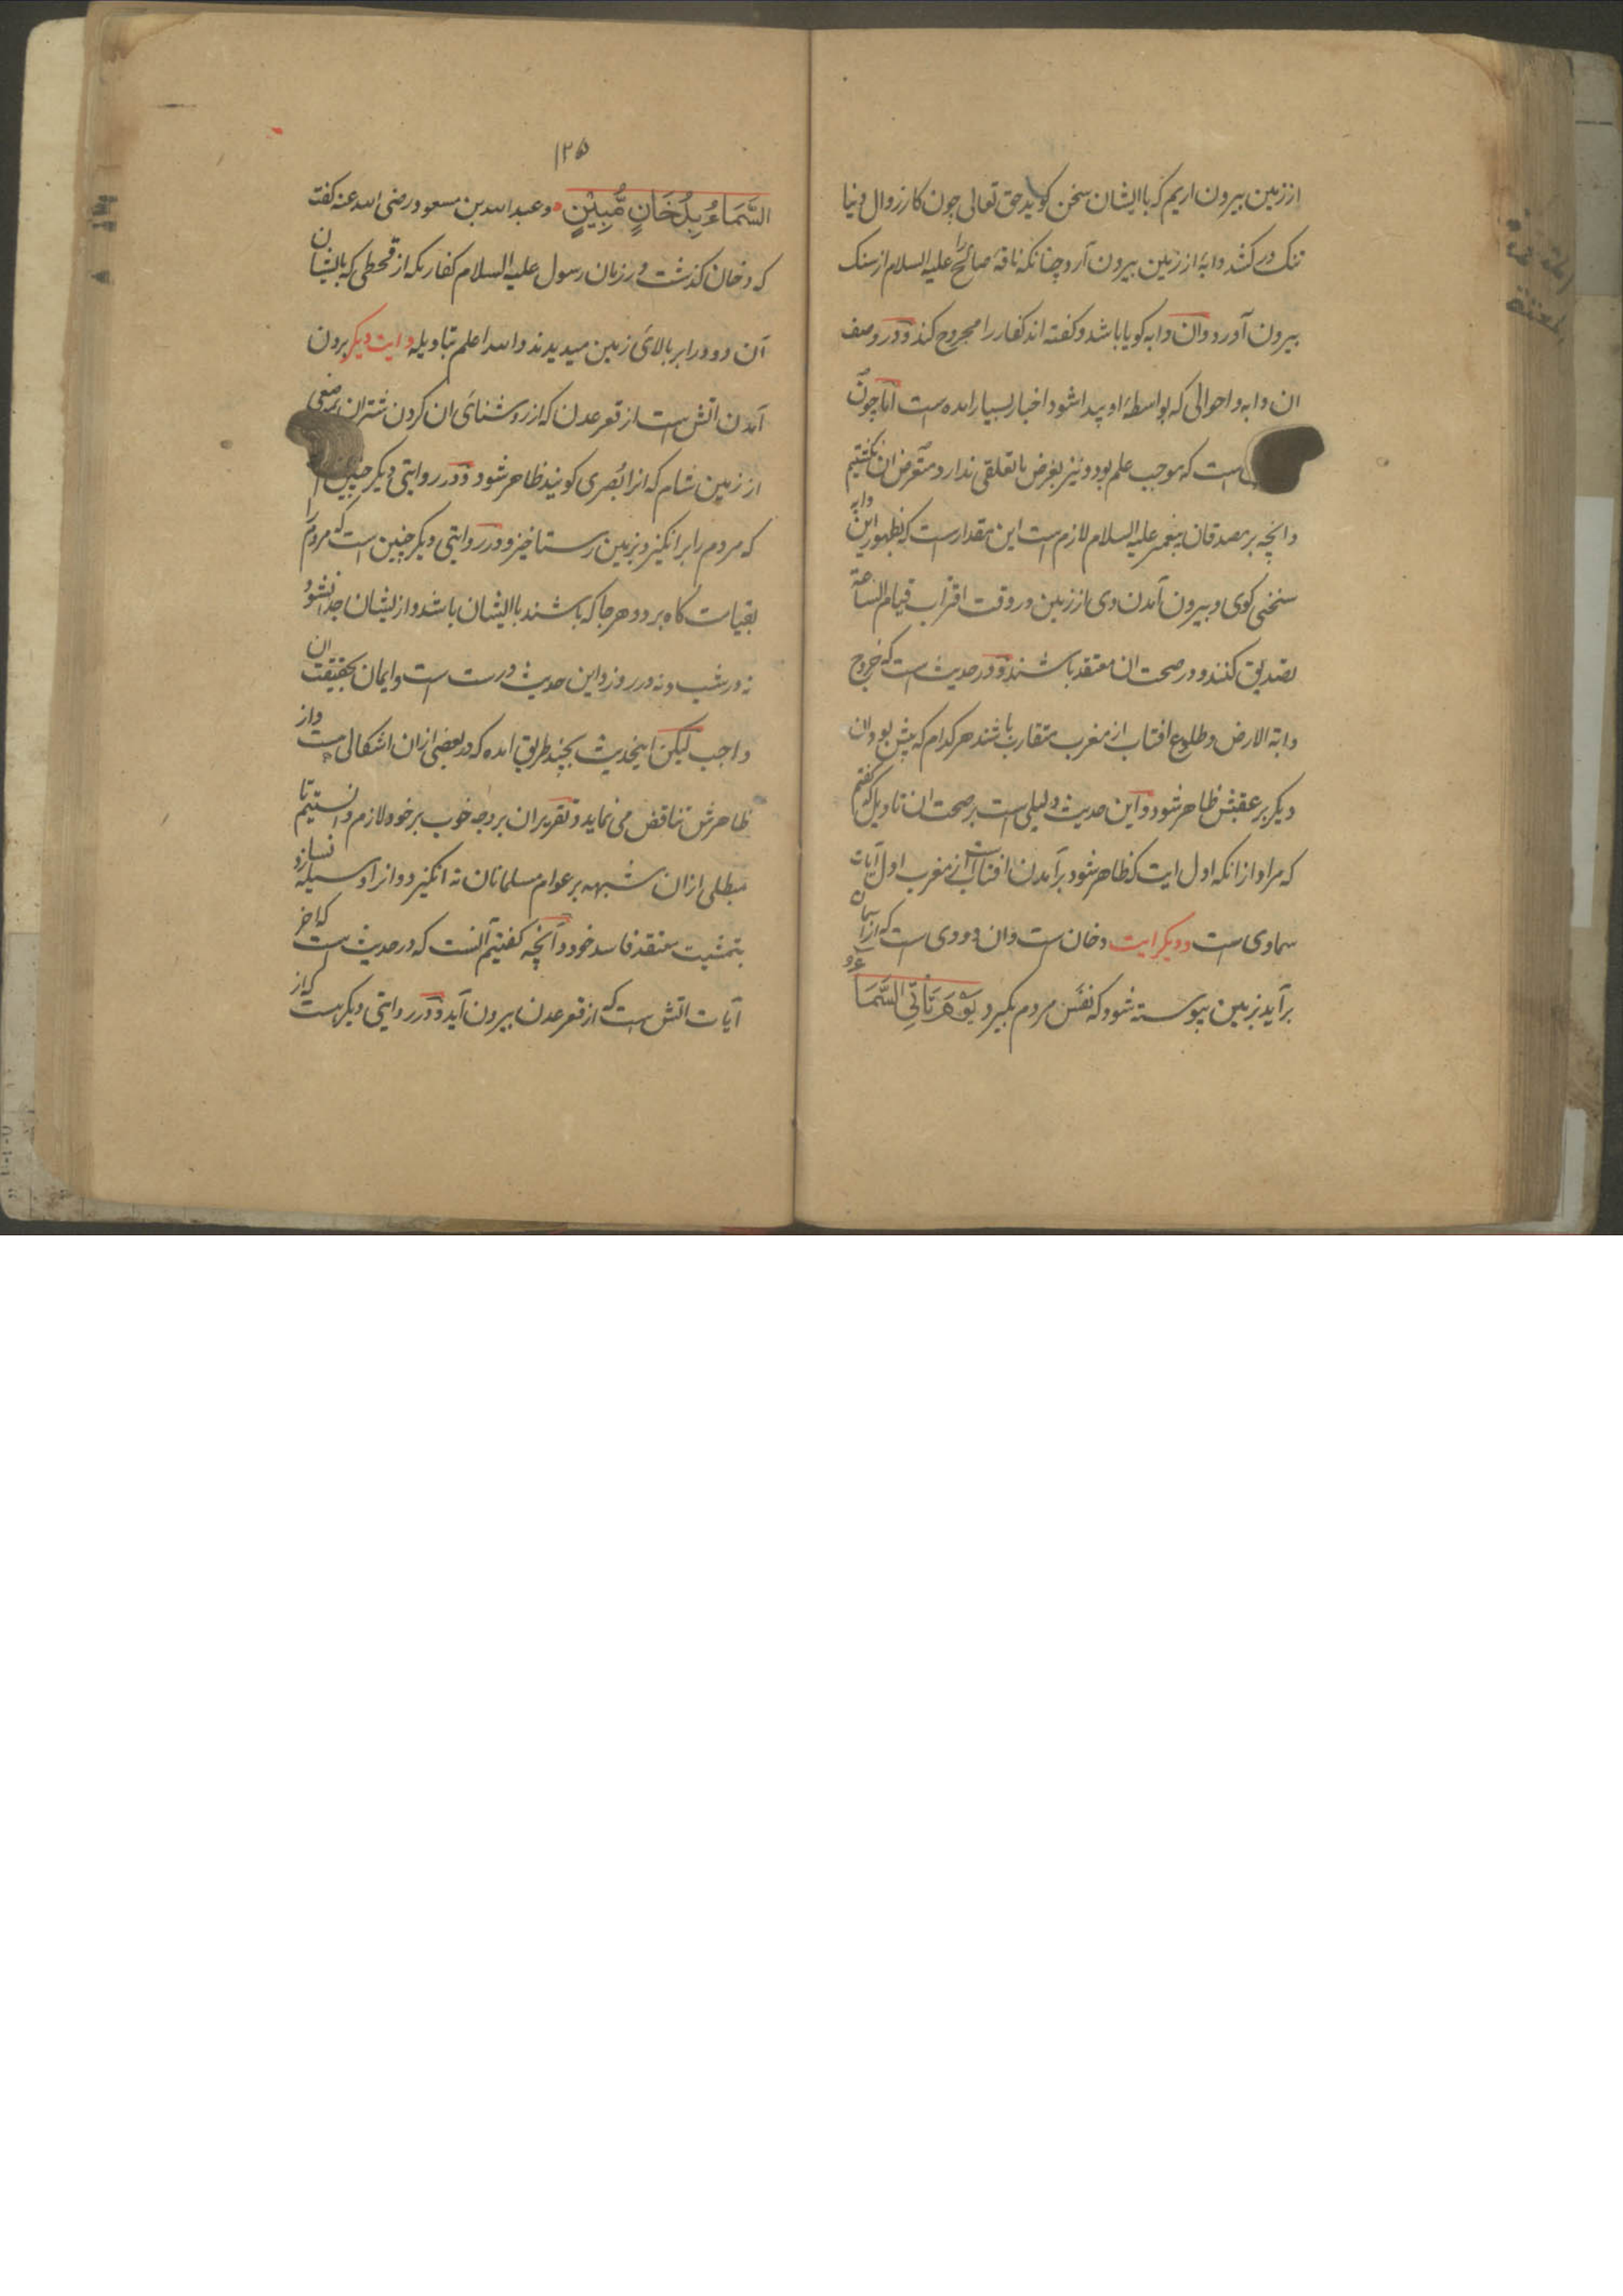 از زمین بیرون اریم که با ایشان سخن کوید حق تعالی چون کار زوال دنیا
تنک در کشد دابه از زمین بیرون آرد چنانکه ناقهٔ صالح را علیه السلام از سنک
بیرون آورد وان دابه کویا باشد و کفته اند کفار را مجروح کند و در وصف
ان دابه و احوالی که بواسطهٔ او پیدا شود اخبار بسیار امده است اما چون
است که موجب علم بود و نیز بغرض ما تعلقی ندارد متعرض ان نکشتیم
وانچه بر مصدقان پیغمبر علیه السلام لازم است این مقدار است که بظهور این دابه
سخن کوی و بیرون آمدن وی از زمین در وقت اقتراب قیام الساعة
تصدیق کنند و در صحت ان معتقد باشند و در حدیث است که خروج
دابة الارض و طلوع افتاب از مغرب متقارب باشند هر کدام که پیش بود ان
دیکر بر عقبش ظاهر شود و این حدیث دلیلی است بر صحت ان تاویل که کفتیم
که مراد از انکه اول ایت که ظاهر شود برآمدن افتاب است از مغرب اول آیات
سماوی است و دیکر ایت دخان است وان دودی است که از آسمان
برآید بزمین پیوسته شود که نفس مردم بکیرد یَوْمَ تَأْتِي السَّمَا
۱۲۵
السَّمَاءُ بِدُخَانٍ مُّبِيْنٍ و عبد الله بن مسعود رضی الله عنه کفت
که دخان کذشت در زمان رسول علیه السلام کفار مکه از قحطی که بایشان
آن دود را بر بالای زمین میدیدند والله اعلم بتاویله و ایت دیکر برون
آمدن اتش است از قعر عدن که از روشنائی ان کردن شتران بر بعضی
از زمین شام که انرا بُصری کویند ظاهر شود و در روایتی دیکر چنین
که مردم را برانکیزد بزمین رستاخیز و در روایتی دیکر چنین است که مردم را
بقیامت کاه برد و هر جا که باشند با ایشان باشد و از یشان جدا نشود
نه در شب و نه در روز و این حدیث درست است و ایمان بحقیقت ان
واجب لیکن اینحدیث بچند طریق امده که در بعضی ازان اشکالی هست و از
ظاهرش تناقض می نماید و تقریر ان بر وجه خوب بر خود لازم دانستیم تا
مبطلی ازان شبهه بر عوام مسلمانان نه انکیزد و انرا وسیله نسازد
بتمشیت معتقد فاسد خود و آنچه کفتیم آنست که در حدیث است که اخر
آیات اتش است که از قعر عدن بیرون آید و در روایتی دیکر هست که از